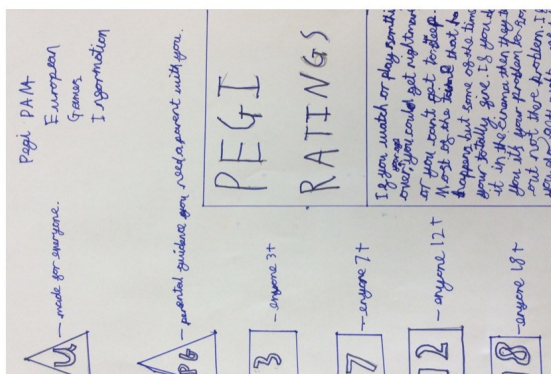 Pegi PAM
European
Games
Information
U — made for everyone.
PG — parental guidence you need a parent with you.
3 — anyone 3+
7 — anyone 7+
12 — anyone 12+
18 — anyone 18+
PEGI
RATINGS
If you watch or play somthi
your age
over, you could get nightmar
or you can't get to sleep.
Most of the time that ha
happens but some of the time
your totally fine. If you d
it in the cinema then they t
you its your problem to so
out not there problem. I